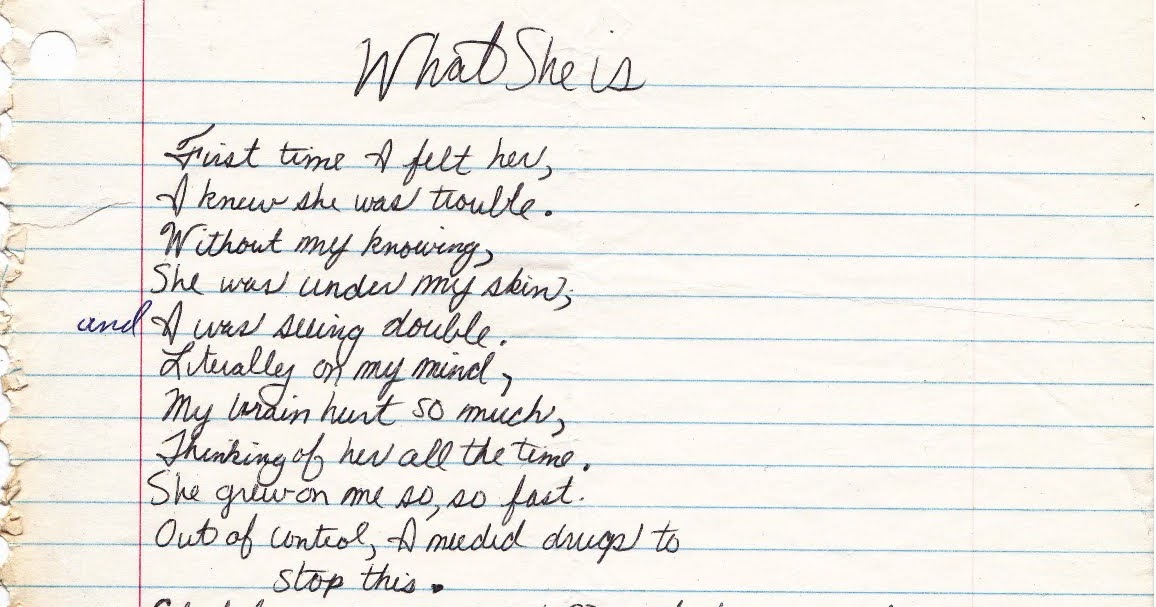 What She is
First time I felt her,
I knew she was trouble.
Without my knowing,
She was under my skin,
and I was seeing double.
Literally on my mind,
My brain hurt so much,
Thinking of her all the time.
She grew on me so, so fast.
Out of control, I needed drugs to
stop this.